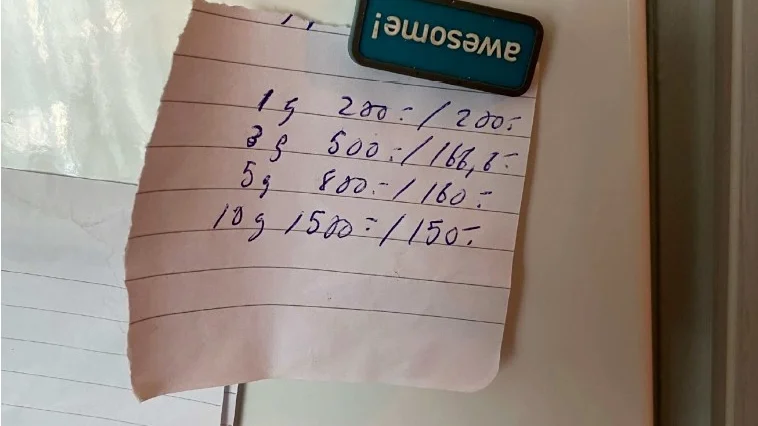 awesome!
1g 200:-/200:-
3g 500:-/166,6:-
5g 800:-/160:-
10g 1500:-/150:-